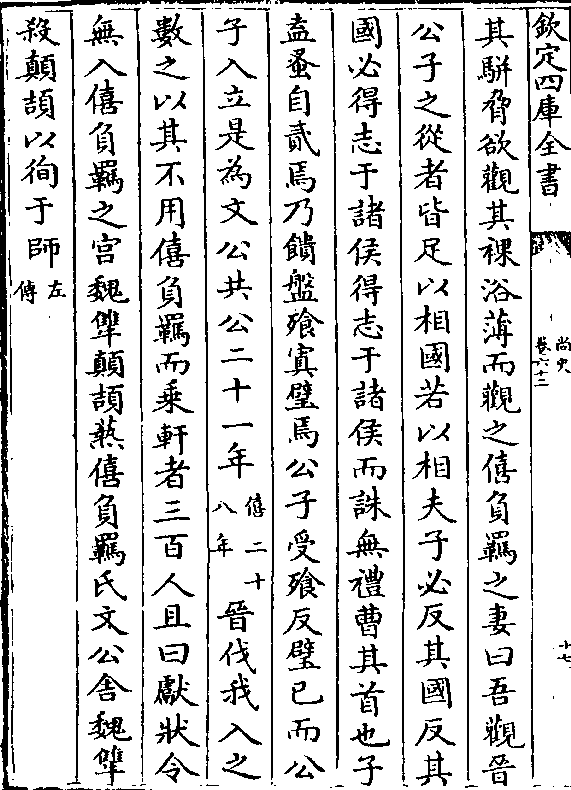 欽定四庫全書
尚史
卷六十三
十七
其駢脅欲觀其裸浴薄而觀之僖負羈之妻曰吾觀晉
公子之從者皆足以相國若以相夫子必反其國反其
國必得志于諸侯得志于諸侯而誅無禮曹其首也子
盍蚤自貳焉乃饋盤飱寘璧焉公子受飱反璧已而公
子入立是為文公共公二十一年僖二十八年晉伐我入之
數之以其不用僖負羈而乗軒者三百人且曰獻狀令
無入僖負羈之宫魏犨顛頡爇僖負羈氏文公舎魏犨
殺顛頡以徇于師左傳